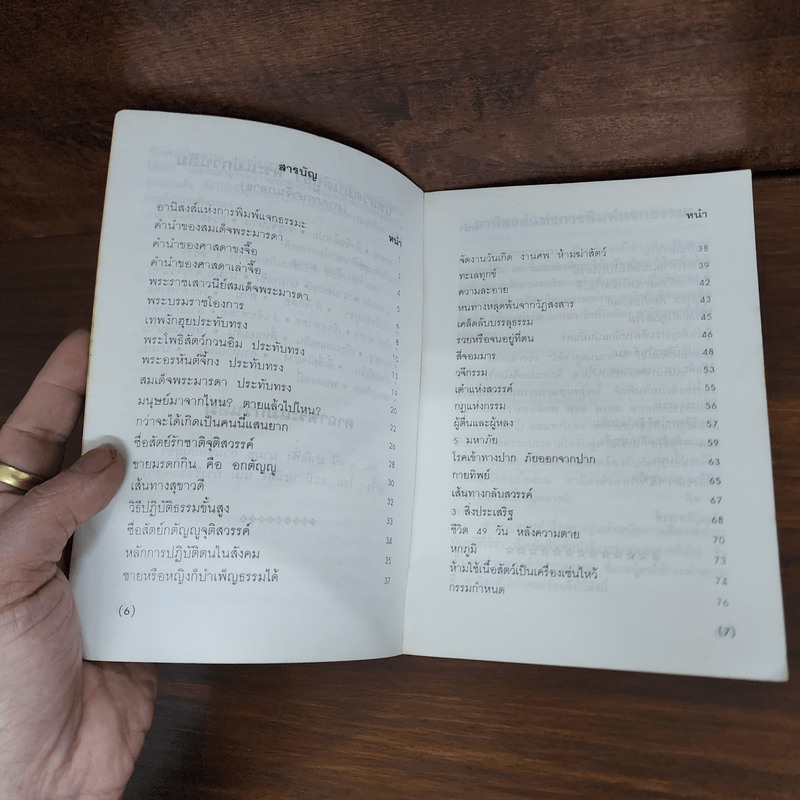 สารบัญ
หน้า
อานิสงส์แห่งการพิมพ์แจกธรรมะ 1
คำนำของสมเด็จพระมารดา 3
คำนำของศาสดาขงจื๊อ 4
คำนำของศาสดาเล่าจื๊อ
พระราชเสาวนีย์สมเด็จพระมารดา
พระบรมราชโองการ
เทพงักฮุยประทับทรง
พระโพธิสัตว์กวนอิม ประทับทรง
พระอรหันต์จี้กง ประทับทรง
สมเด็จพระมารดา ประทับทรง 20
มนุษย์มาจากไหน? ตายแล้วไปไหน? 22
กว่าจะได้เกิดเป็นคนนี้แสนยาก 26
ซื่อสัตย์รักชาติจุติสวรรค์ 28
ขายมรดกกิน คือ อกตัญญู 30
เส้นทางสุขาวดี 32
วิธีปฏิบัติธรรมขั้นสูง 33
ซื่อสัตย์กตัญญูจุติสวรรค์ 34
หลักการปฏิบัติตนในสังคม 35
ชายหรือหญิงก็บำเพ็ญธรรมได้ 37
(6)
หน้า
จัดงานวันเกิด งานศพ ห้ามฆ่าสัตว์ 38
ทะเลทุกข์ 39
ความละอาย 42
หนทางหลุดพ้นจากวัฏสงสาร 43
เคล็ดลับบรรลุธรรม 45
รวยหรือจนอยู่ที่ตน 46
สี่จอมมาร 48
วจีกรรม 53
เต๋าแห่งสวรรค์ 55
กฎแห่งกรรม 56
ผู้ตื่นและผู้หลง 57
5 มหาภัย 59
โรคเข้าทางปาก ภัยออกจากปาก 63
กายทิพย์ 65
เส้นทางกลับสวรรค์ 67
3 สิ่งประเสริฐ 68
ชีวิต 49 วัน หลังความตาย 70
หกภูมิ 73
ห้ามใช้เนื้อสัตว์เป็นเครื่องเซ่นไหว้ 74
กรรมกำหนด 76
(7)